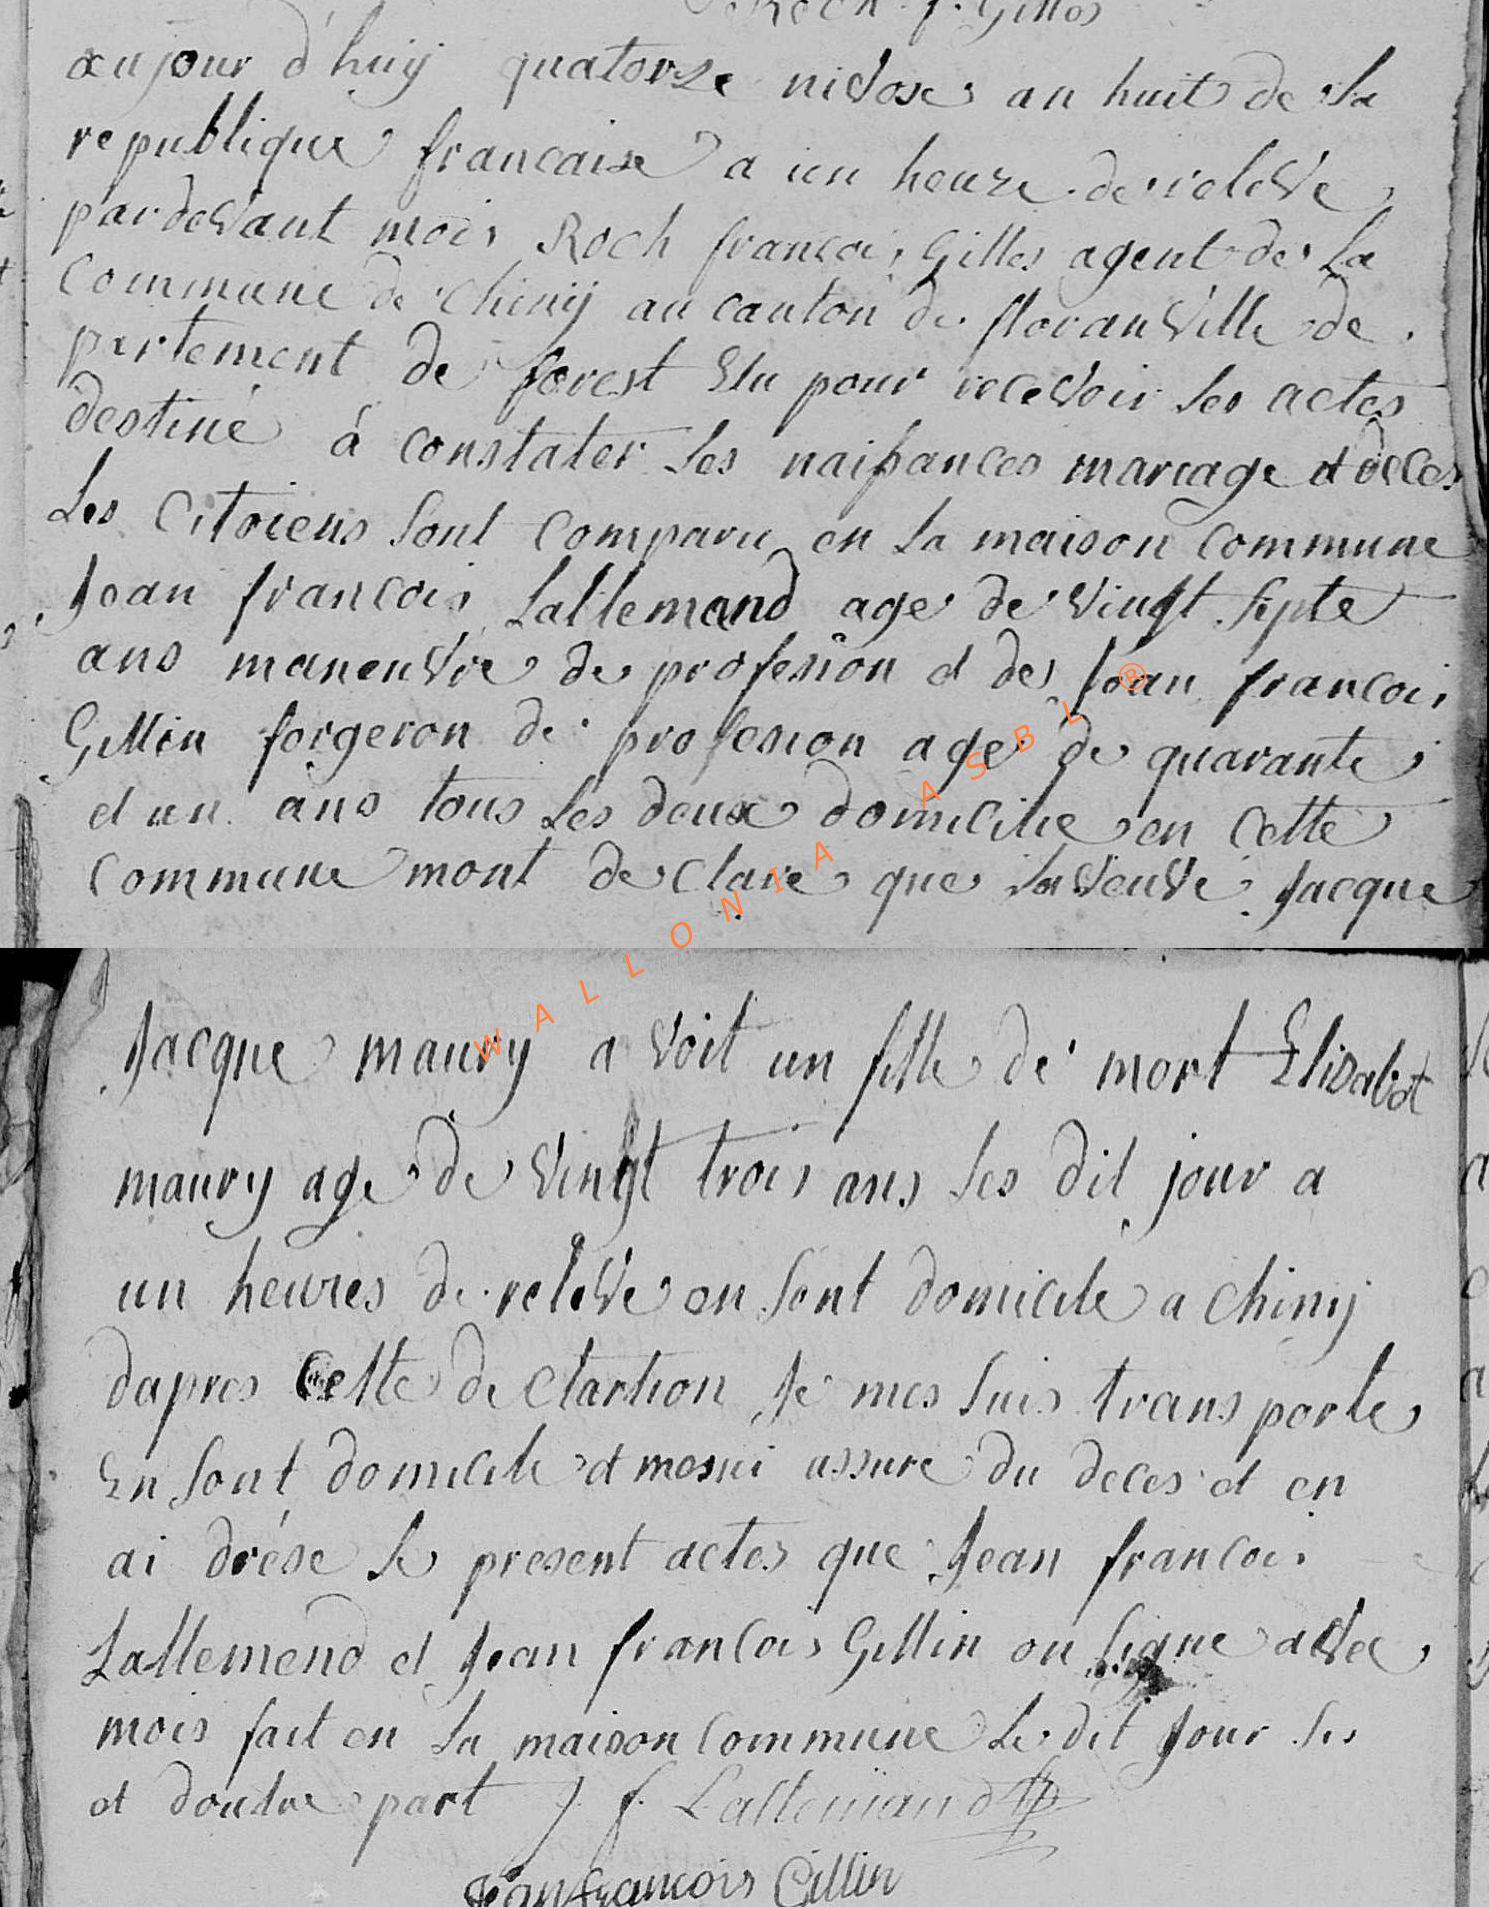 Roch f. Gilles
aujour d'huij quatorze nivose an huit de la
republique francaise a un heure de relevé
pardevant mois Roch francois Gilles agent de la
Commune de chinij au canton de floranville de
partement de forest Elu pour recevoir les actes
destiné á constater les naissances mariage et deces
Les Citoiens sont comparu en la maison commune
Jean francois Lallemand age de vingt septe
ans maneuvre de profesion et des Jean francois
Gillin forgeron de profesion age de quarante
et un ans tous les deux domicilie en cette
commune mont de clare que la veuve Jacque
Jacque maury a voit un fille de mort Elisabet
maury age de vingt trois ans les dit jour a
un heures de relevé en sont domicile a chinij
dapres Cette de clartion Je mes suis trans porte
En sont domicile et mesui assure du deces et en
ai drése le present actes que Jean francois
Lallemend et Jean francois Gillin on signe avec
mois fait en la maison commune le dit Jour les
et doutre part J. f. Lallemand
Jean francois Gillin
WALLONIA ASBL ®